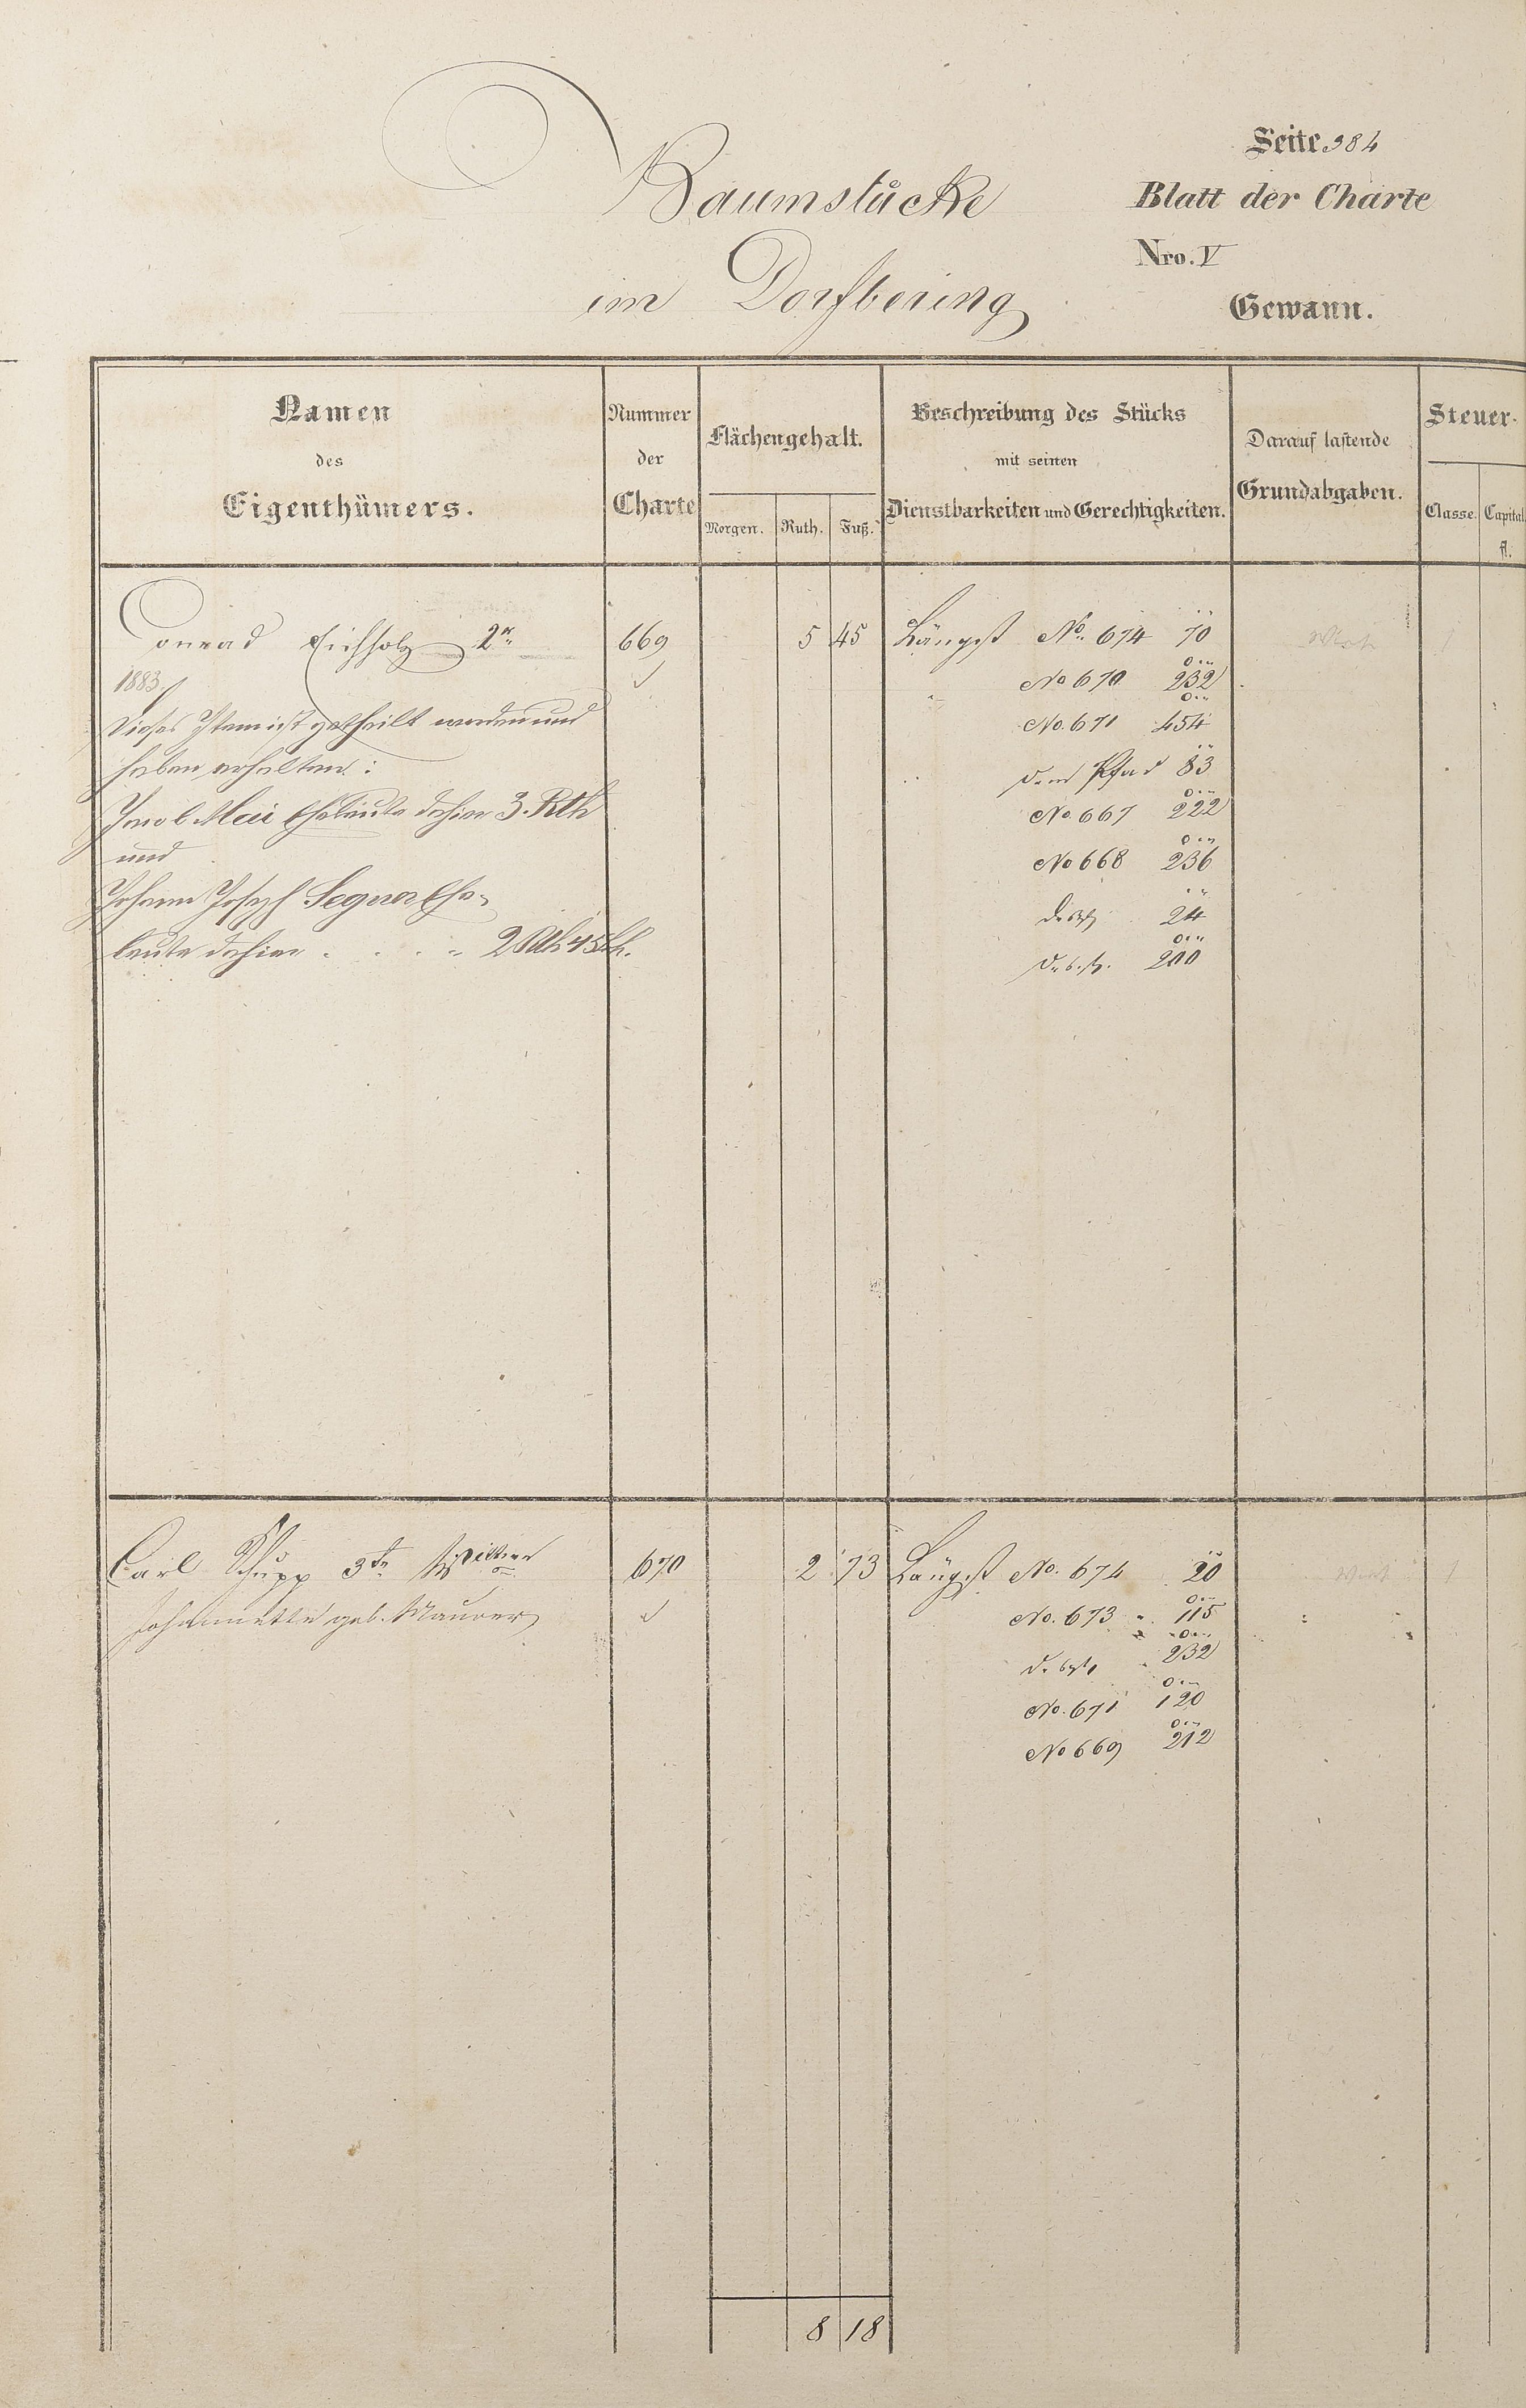 Seite 984
Baumstücke
Blatt der Charte
Nro. V
im Dorfbering
Gewann.
Namen
des
Eigenthümers.
Nummer
der
Charte
Flächengehalt.
Morgen. Ruth. Fuß.
Beschreibung des Stücks
mit seinen
Dienstbarkeiten und Gerechtigkeiten.
Darauf lastende
Grundabgaben.
Steuer-
Classe. Capital
fl.
Conrad Eichholz 2r 669 5 45 Längst No. 674 70
1883.
No 670 232
Dieses Item ist getheilt worden und
No. 671 454
haben erhalten:
dem Pfad 83
Jacob Mai Eheleute dahier 3. Rth
No 667 222
und
No 668 236
Johann Joseph Segner Ehe-
dsbst 24
leute dahier . . . . 2 Rth 45 Sch.
dsbst. 200
Carl Schupp 3te Wittwe 670 2 73 Längst No. 674 20
Johannette geb. Maurer
No. 673 " 115
dsbst 232
No. 671 120
No 669 212
8 18